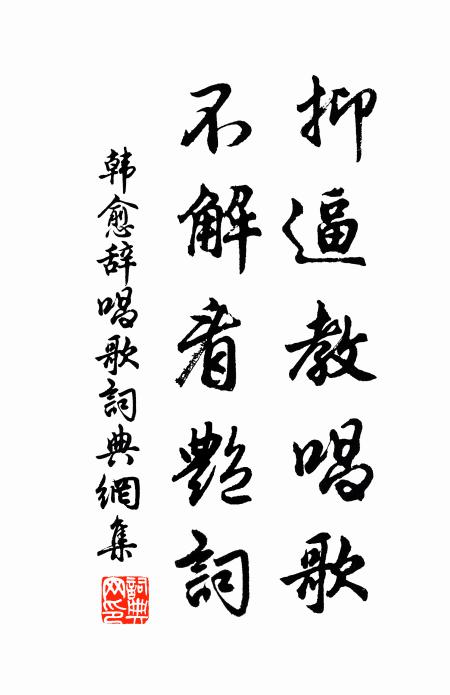 抑逼教唱歌
不解看艷詞
韩愈辞唱歌詞典網集
詞典网印